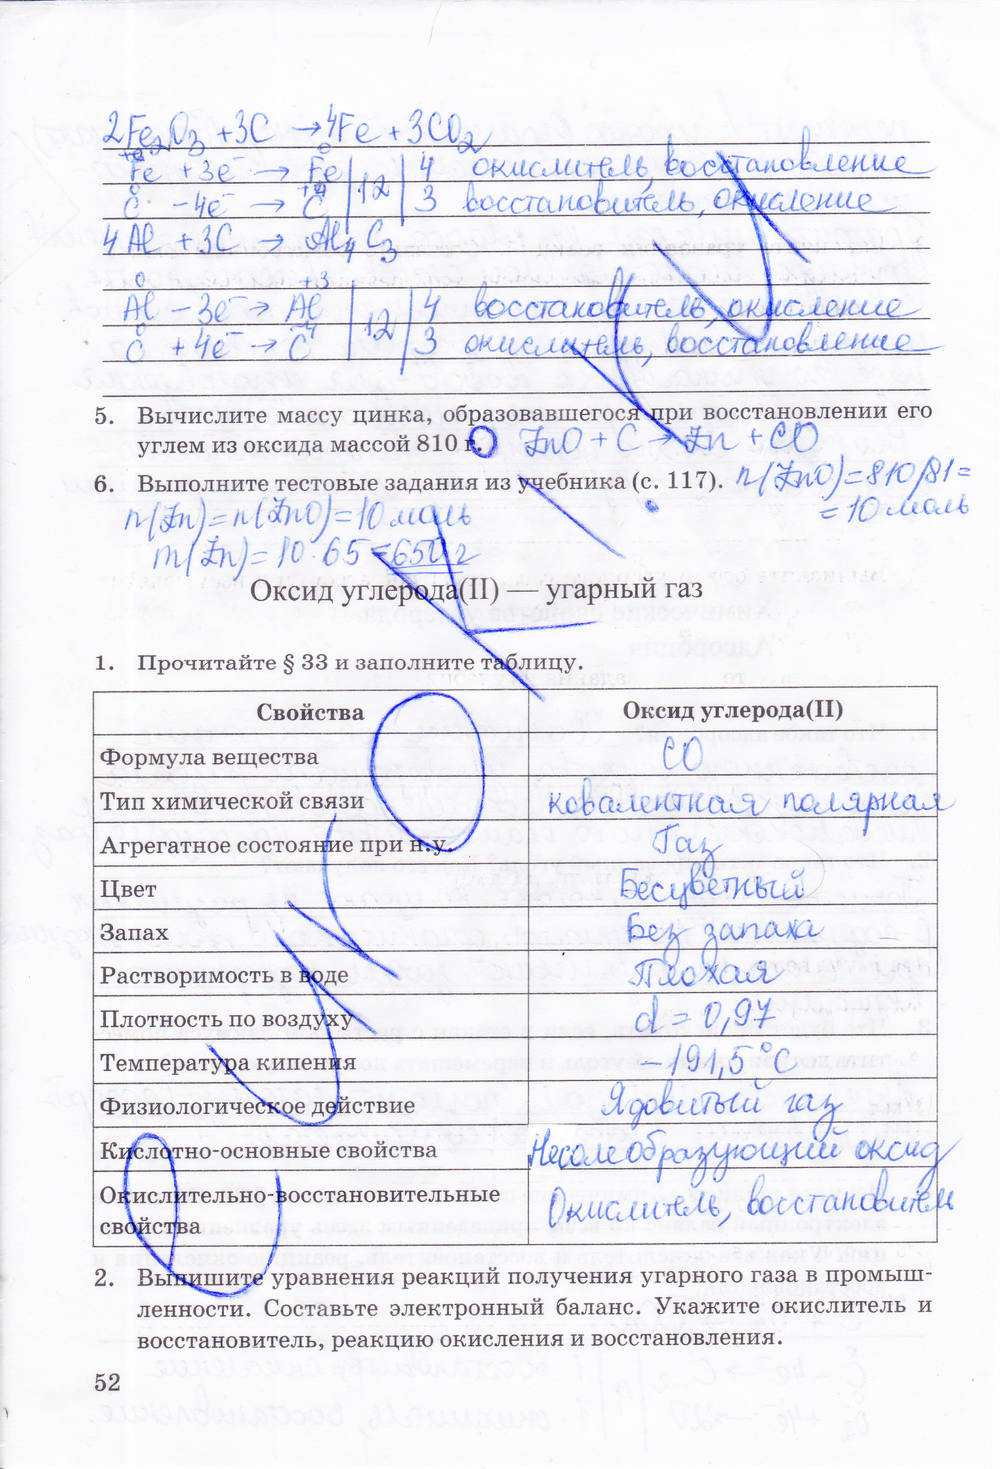 2Fe₂O₃ + 3C → 4Fe + 3CO₂
Fe⁺³ + 3e⁻ → Fe⁰ | 12 | 4 окислитель, восстановление
C⁰ - 4e⁻ → C⁺⁴ 3 восстановитель, окисление
4Al + 3C → Al₄C₃
Al⁰ - 3e⁻ → Al⁺³ | 12 | 4 восстановитель, окисление
C⁰ + 4e⁻ → C⁻⁴ 3 окислитель, восстановление
5. Вычислите массу цинка, образовавшегося при восстановлении его
углем из оксида массой 810 г. ZnO + C → Zn + CO
6. Выполните тестовые задания из учебника (с. 117). n(ZnO) = 810/81 =
= 10 моль
n(Zn) = n(ZnO) = 10 моль
m(Zn) = 10 · 65 = 650 г
Оксид углерода(II) — угарный газ
1. Прочитайте § 33 и заполните таблицу.
Свойства Оксид углерода(II)
Формула вещества CO
Тип химической связи ковалентная полярная
Агрегатное состояние при н.у. Газ
Цвет Бесцветный
Запах Без запаха
Растворимость в воде Плохая
Плотность по воздуху d = 0,97
Температура кипения - 191,5°C
Физиологическое действие Ядовитый газ
Кислотно-основные свойства Несолеобразующий оксид
Окислительно-восстановительные
свойства Окислитель, восстановитель
2. Выпишите уравнения реакций получения угарного газа в промыш-
ленности. Составьте электронный баланс. Укажите окислитель и
восстановитель, реакцию окисления и восстановления.
52